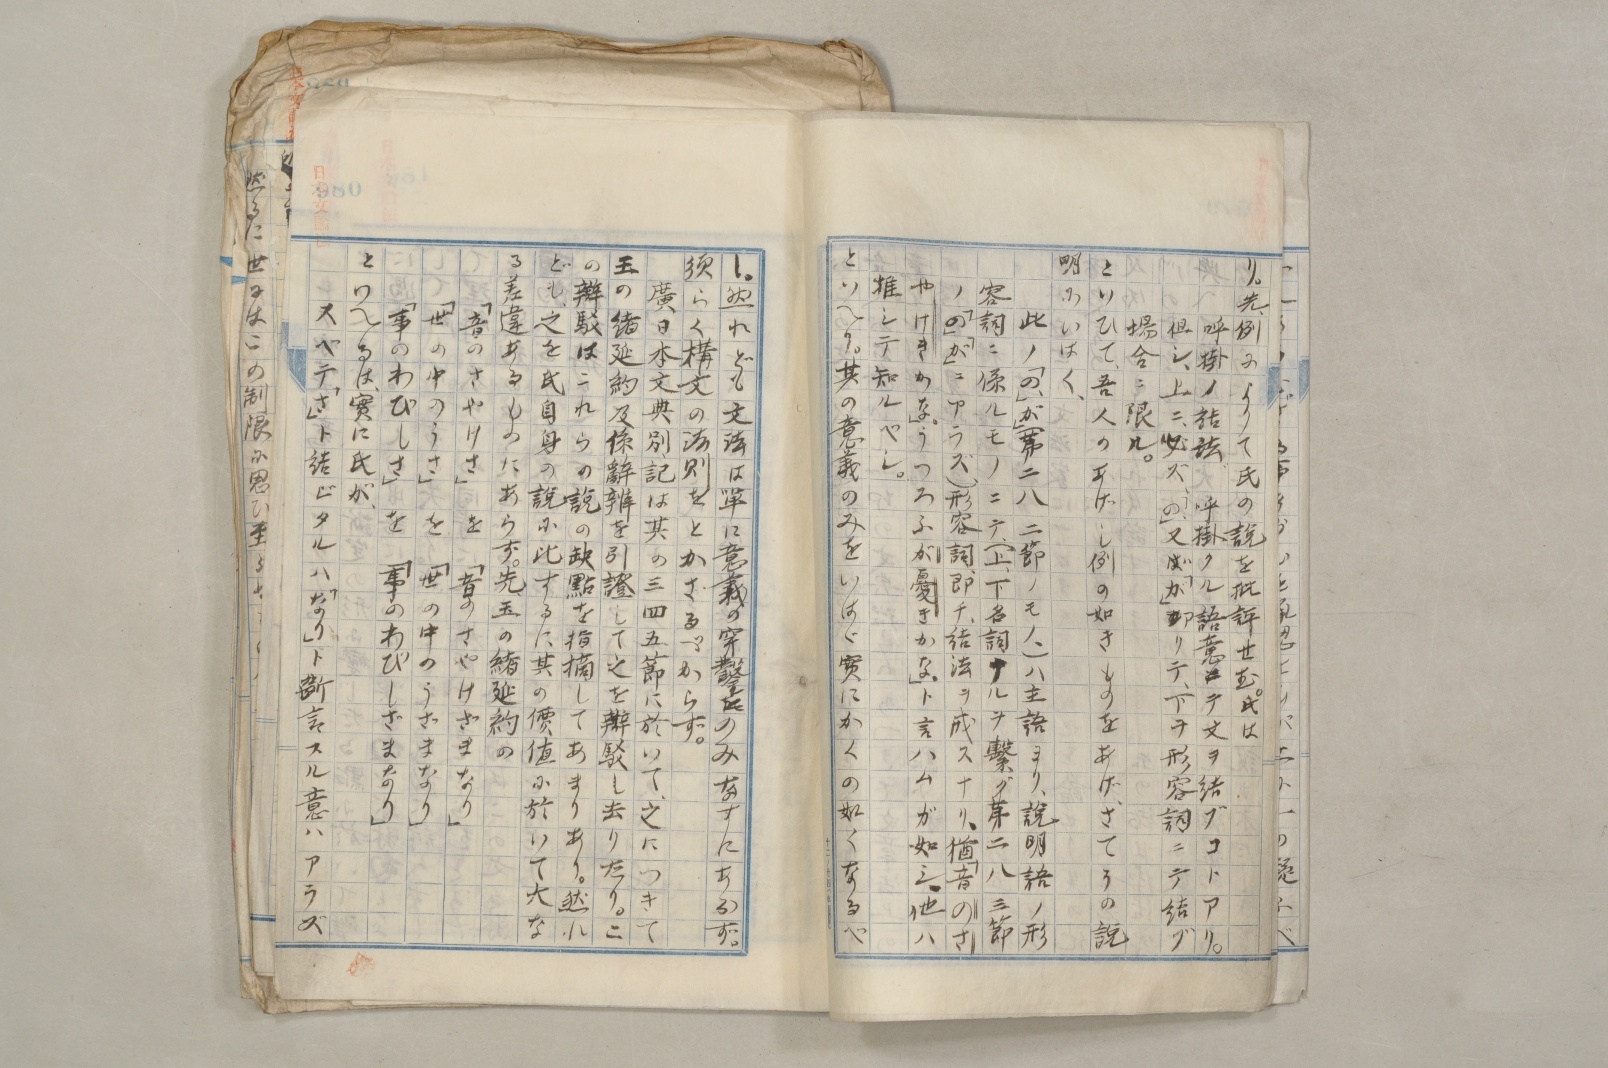 り。先、例によりて氏の説を批評せむ。氏は
呼掛ノ結法 呼掛クル語意ニテ文ヲ結ブコトアリ。
但シ、上ニ、必ズ、「の」又ハ「が」アリテ、下ヲ形容詞ニテ結ブ
場合ニ限ル。
といひて、吾人のあげし例の如きものをあげ、さてその説
明にいはく、
此ノ「の」「が」(第二八二節ノモノ)ハ主語ヨリ、説明語ノ形
容詞ニ係ルモノニテ、(上下名詞ナルヲ繋グ第二八三節
ノ「の」「が」ニアラズ)形容詞、即チ、結法ヲ成スナリ、猶「音のさ
やけきかな」うつろふが憂きかな」ト言ハムガ如シ、他ハ
推シテ知ルベシ。
といへり。其の意義のみをいはゞ實にかくの如くなるべ
し。然れども文法は單に意義の穿鑿をのみなすにあらず。
須らく構文の法則をとかざるべからず。
廣日本文典別記は其の三四五節に於いて、之につきて
玉の緒延約及係辭辨を引證して之を辯駁し去りたり。こ
の辯駁はこれらの説の缺點を指摘してあまりあり。然れ
ども、之を氏自身の説に比するに其の價値に於いて大な
る差違あるものにあらず。先、玉の緒延約の
「音のさやけさ」を 「音のさやけさまなり」
「世の中のうさ」を 「世の中のうさまなり」
「事のわびしさ」を 「事のわびしさまなり」
といへるは、實に氏が、
スベテ「さ」ト結ビタルハ「なり」ト斷言スル意ハアラズ
然るに世
の制限に思ひ至